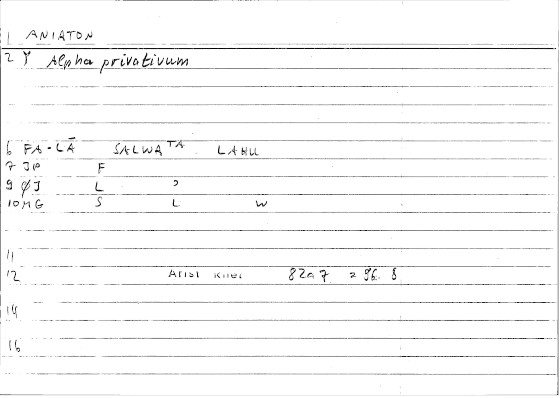 1 ANIATON
2 Y Alpha privativum
6 FA-LĀ SALWATA LAHU
7 JP F
9 ØJ L ʾ
10 MG S L W
11
12 Arist Rhet 82a7 = 96. 8
14
16